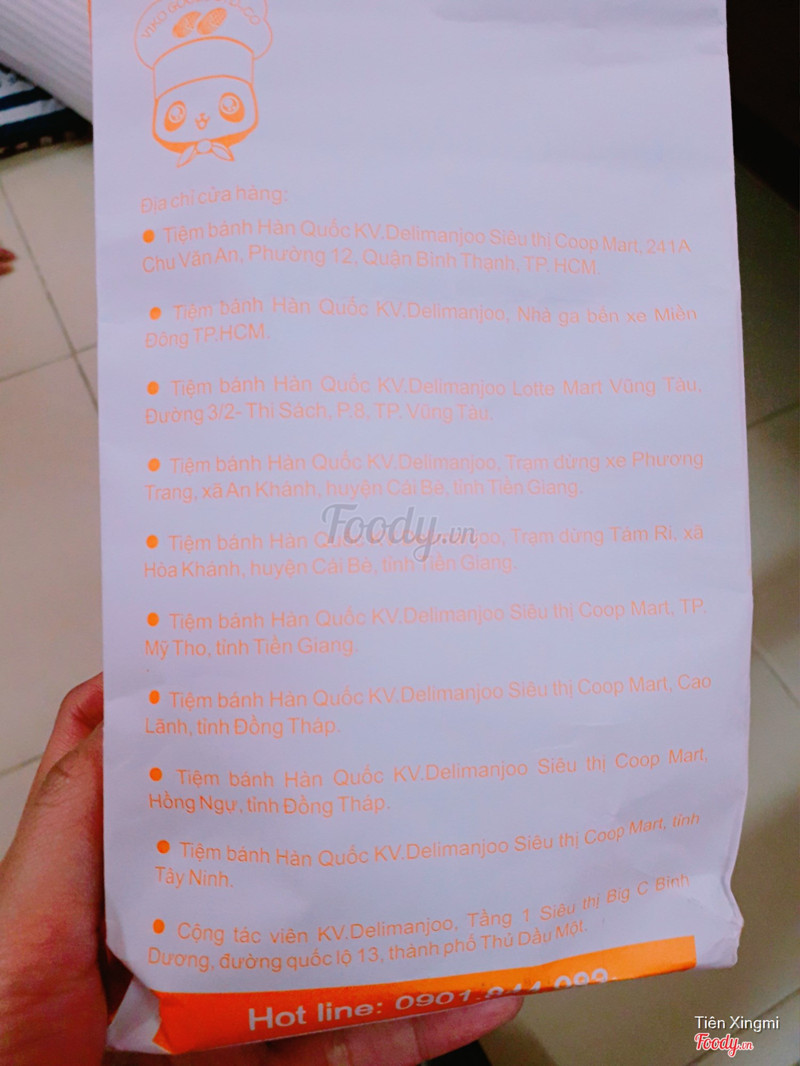 Địa chỉ cửa hàng:
● Tiệm bánh Hàn Quốc KV.Delimanjoo Siêu thị Coop Mart, 241A
Chu Văn An, Phường 12, Quận Bình Thạnh, TP. HCM.
● Tiệm bánh Hàn Quốc KV.Delimanjoo, Nhà ga bến xe Miền
Đông TP.HCM.
● Tiệm bánh Hàn Quốc KV.Delimanjoo Lotte Mart Vũng Tàu,
Đường 3/2- Thi Sách, P.8, TP. Vũng Tàu.
● Tiệm bánh Hàn Quốc KV.Delimanjoo, Trạm dừng xe Phương
Trang, xã An Khánh, huyện Cái Bè, tỉnh Tiền Giang.
● Tiệm bánh Hàn Quốc KV.Delimanjoo, Trạm dừng Tám Ri, xã
Hòa Khánh, huyện Cái Bè, tỉnh Tiền Giang.
Foody.vn
● Tiệm bánh Hàn Quốc KV.Delimanjoo Siêu thị Coop Mart, TP.
Mỹ Tho, tỉnh Tiền Giang.
● Tiệm bánh Hàn Quốc KV.Delimanjoo Siêu thị Coop Mart, Cao
Lãnh, tỉnh Đồng Tháp.
● Tiệm bánh Hàn Quốc KV.Delimanjoo Siêu thị Coop Mart,
Hồng Ngự, tỉnh Đồng Tháp.
● Tiệm bánh Hàn Quốc KV.Delimanjoo Siêu thị Coop Mart, tỉnh
Tây Ninh.
● Cộng tác viên KV.Delimanjoo, Tầng 1 Siêu thị Big C Bình
Dương, đường quốc lộ 13, thành phố Thủ Dầu Một.
Hot line: 0901.844.099.
Tiên Xingmi
Foody.vn